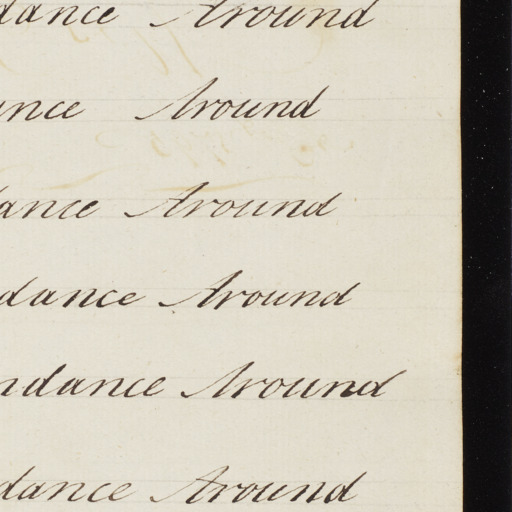 dance Around
ance Around
dance Around
dance Around
ndance Around
dance Around